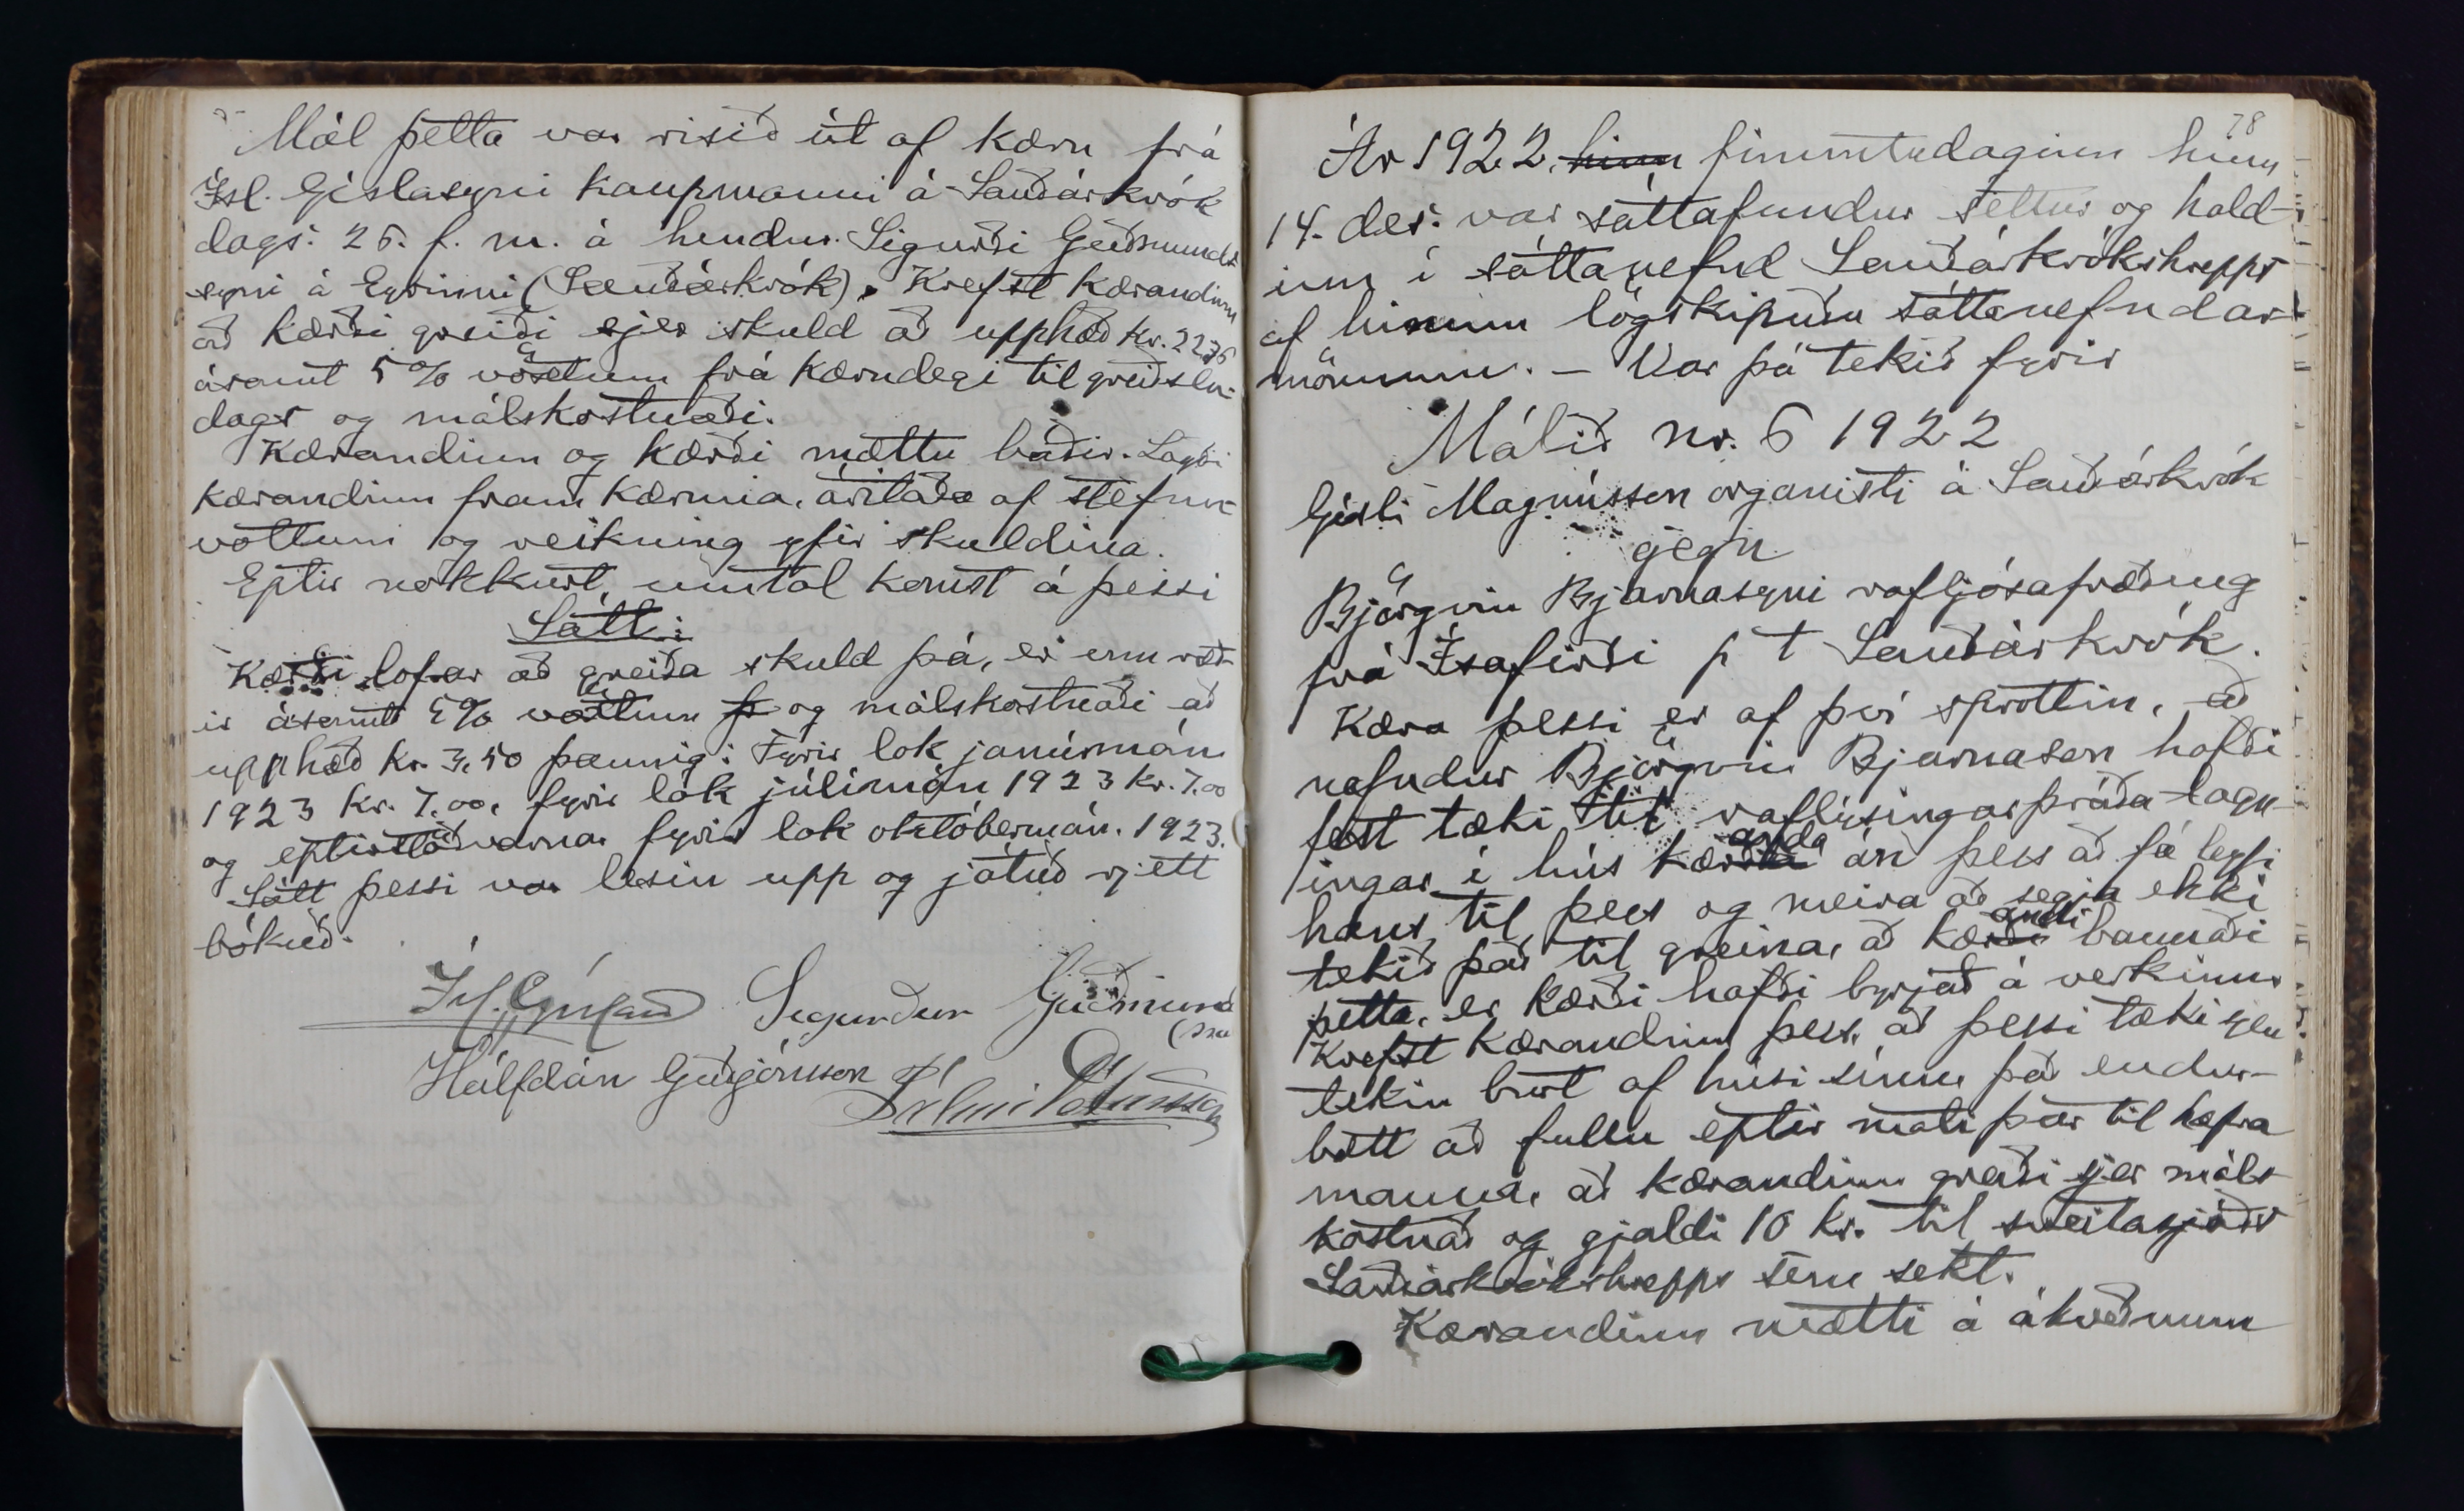 Mál þetta var risið út af kæru frá
Ísl. Gíslasyni kaupmanni á Sauðárkrók
dags. 25. f. m. á hendur Sigurði Guðmunds
syni á Eyrinni (Sauðárkrók). Krefst kærandinn
að kærði greiði sjer skuld að upphæð kr. 22,76
ásamt 5% vöxtum frá kærudegi til greiðslu-
dags og málskostnaði.
Kærandinn og kærði mættu báðir. Lagði
kærandinn fram kæruna, áritaða af stefnu-
vottum og reikning yfir skuldina.
Eptir nokkurt umtal komst á þessi
Sátt:
Kærði lofar að greiða skuld þá, er um ræð-
ir ásamt 5% vöxtum þ og málskostnaði að
upphæð kr. 3,50 þannig: Fyrir lok janúarmán.
1923 kr. 7.00, fyrir lok júlímán 1923 kr. 7.00
og eptirstöðvarnar fyrir lok októbermán. 1923.
Sátt þessi var lesin upp og játuð rjett
bókuð.
Ísl. Gíslason Sigurður Guðmund
(sson
Hálfdán Guðjónsson Pálmi Pétursson
78
Ár 1922, hinn fimmtudaginn hinn
14. des. var sáttafundur settur og hald-
inn í sáttanefnd Sauðárkrókshrepps
af hinum lögskipuðu sáttanefndar-
mönnum. – Var þá tekið fyrir
Málið nr. 6 1922
Gísli Magnússon organisti á Sauðárkrók
gegn
Björgvin Bjarnasyni rafljósafræðing
frá Ísafirði p t Sauðárkrók.
Kæra þessi er af því sprottin, að
nefndur Björgvin Bjarnason hafði
fest tæki til raflýsingarþráða-lagn-
ingar í hús kærða anda án þess að fá leyfi
hans til þess og meira að segja ekki
tekið það til greina, að kærði andi bannaði
þetta, er kærði hafði byrjað á verkinu.
Krefst kærandinn þess, að þessi tæki sjeu
tekin burt af húsi sínu, það endur-
bætt að fullu eptir mati þar til hæfra
manna, að kærandinn greiði sjer máls
kostnað og gjaldi 10 kr. til sveitasjóðs
Sauðárkrókshrepps sem sekt.
Kærandinn mætti á ákveðnum